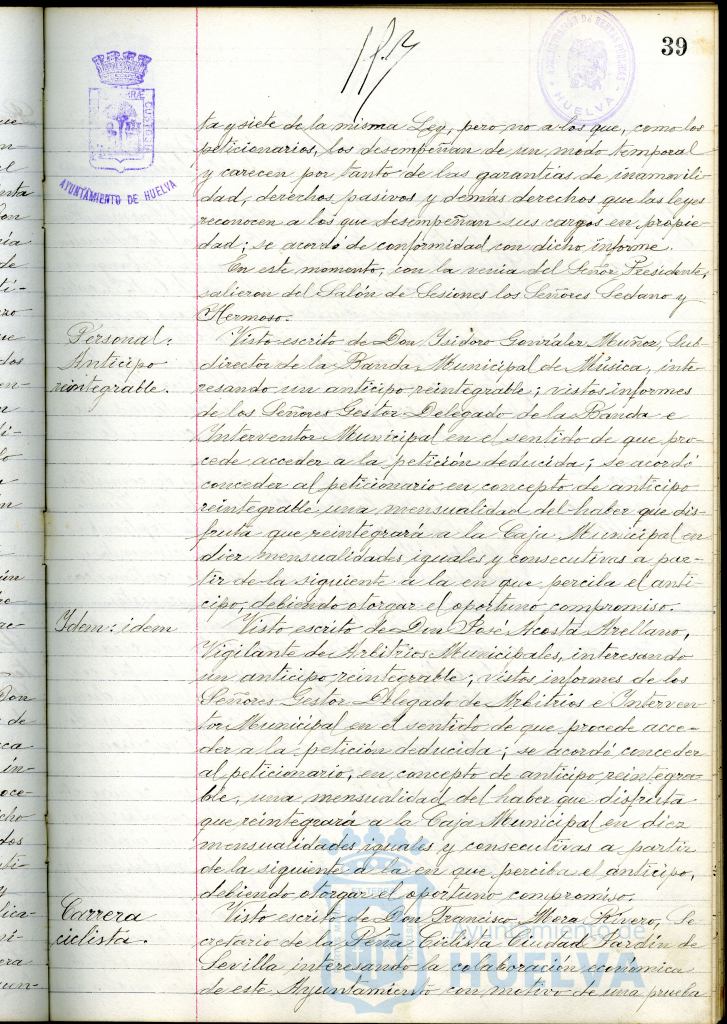 39
AYUNTAMIENTO DE HUELVA
HUELVA
ta y siete de la misma Ley, pero no a los que, como los
peticionarios, los desempeñan de un modo temporal
y carecen por tanto de las garantias de inamovili-
dad, derechos pasivos y demás derechos que las leyes
reconocen a los que desempeñan sus cargos en propie-
dad; se acordó de conformidad con dicho informe.
En este momento, con la venia del Señor Presidente,
salieron del Salón de Sesiones los Señores Sedano y
Hermoso.
Personal:
Anticipo
reintegrable.
Visto escrito de Don Isidoro González Muñoz, Sub-
director de la Banda Municipal de Música, inte-
resando un anticipo reintegrable; vistos informes
de los Señores Gestor Delegado de la Banda e
Interventor Municipal en el sentido de que pro-
cede acceder a la petición deducida; se acordó
conceder al peticionario en concepto de anticipo
reintegrable una mensualidad del haber que dis-
fruta que reintegrará a la Caja Municipal en
diez mensualidades iguales y consecutivas a par-
tir de la siguiente a la en que perciba el anti-
cipo, debiendo otorgar el oportuno compromiso.
Idem: idem
Visto escrito de Don José Acosta Arellano,
Vigilante de Arbitrios Municipales, interesando
un anticipo reintegrable; vistos informes de los
Señores Gestor Delegado de Arbitrios e Interven-
tor Municipal en el sentido de que procede acce-
der a la petición deducida; se acordó conceder
al peticionario, en concepto de anticipo reintegra-
ble, una mensualidad del haber que disfruta
que reintegrará a la Caja Municipal en diez
mensualidades iguales y consecutivas a partir
de la siguiente a la en que perciba el anticipo,
debiendo otorgar el oportuno compromiso.
Carrera
ciclista.
Visto escrito de Don Francisco Mora Rivero, Se-
cretario de la Peña Ciclista Ciudad Jardín de
Sevilla interesando la colaboración económica
de este Ayuntamiento con motivo de una prueba
Ayuntamiento de
HUELVA